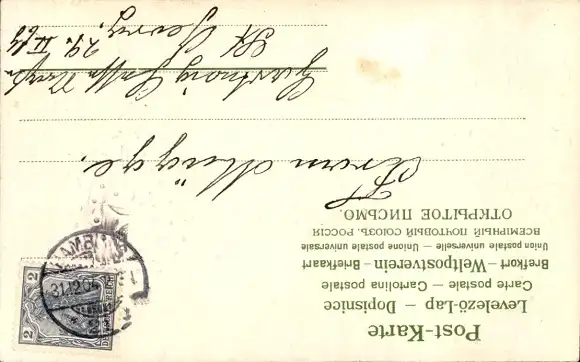 Post-Karte
Levelező-Lap – Dopisnice
Carte postale – Cartolina postale
Brefkort – Weltpostverein – Briefkaart
Union postale universelle – Unione postale universale
ВСЕМІРНЫЙ ПОЧТОВЫЙ СОЮЗЪ. РОССІЯ
ОТКРЫТОЕ ПИСЬМО.
HAMBURG
31.12.04
2 2
Frau Mügge.
St Georg.
24. II